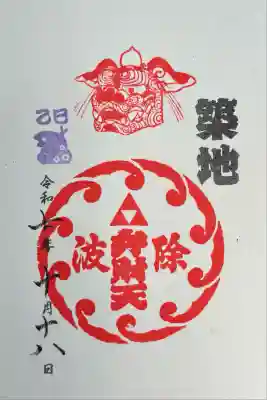 築地
乙巳
波除
弁財天
令和七年十月十八日